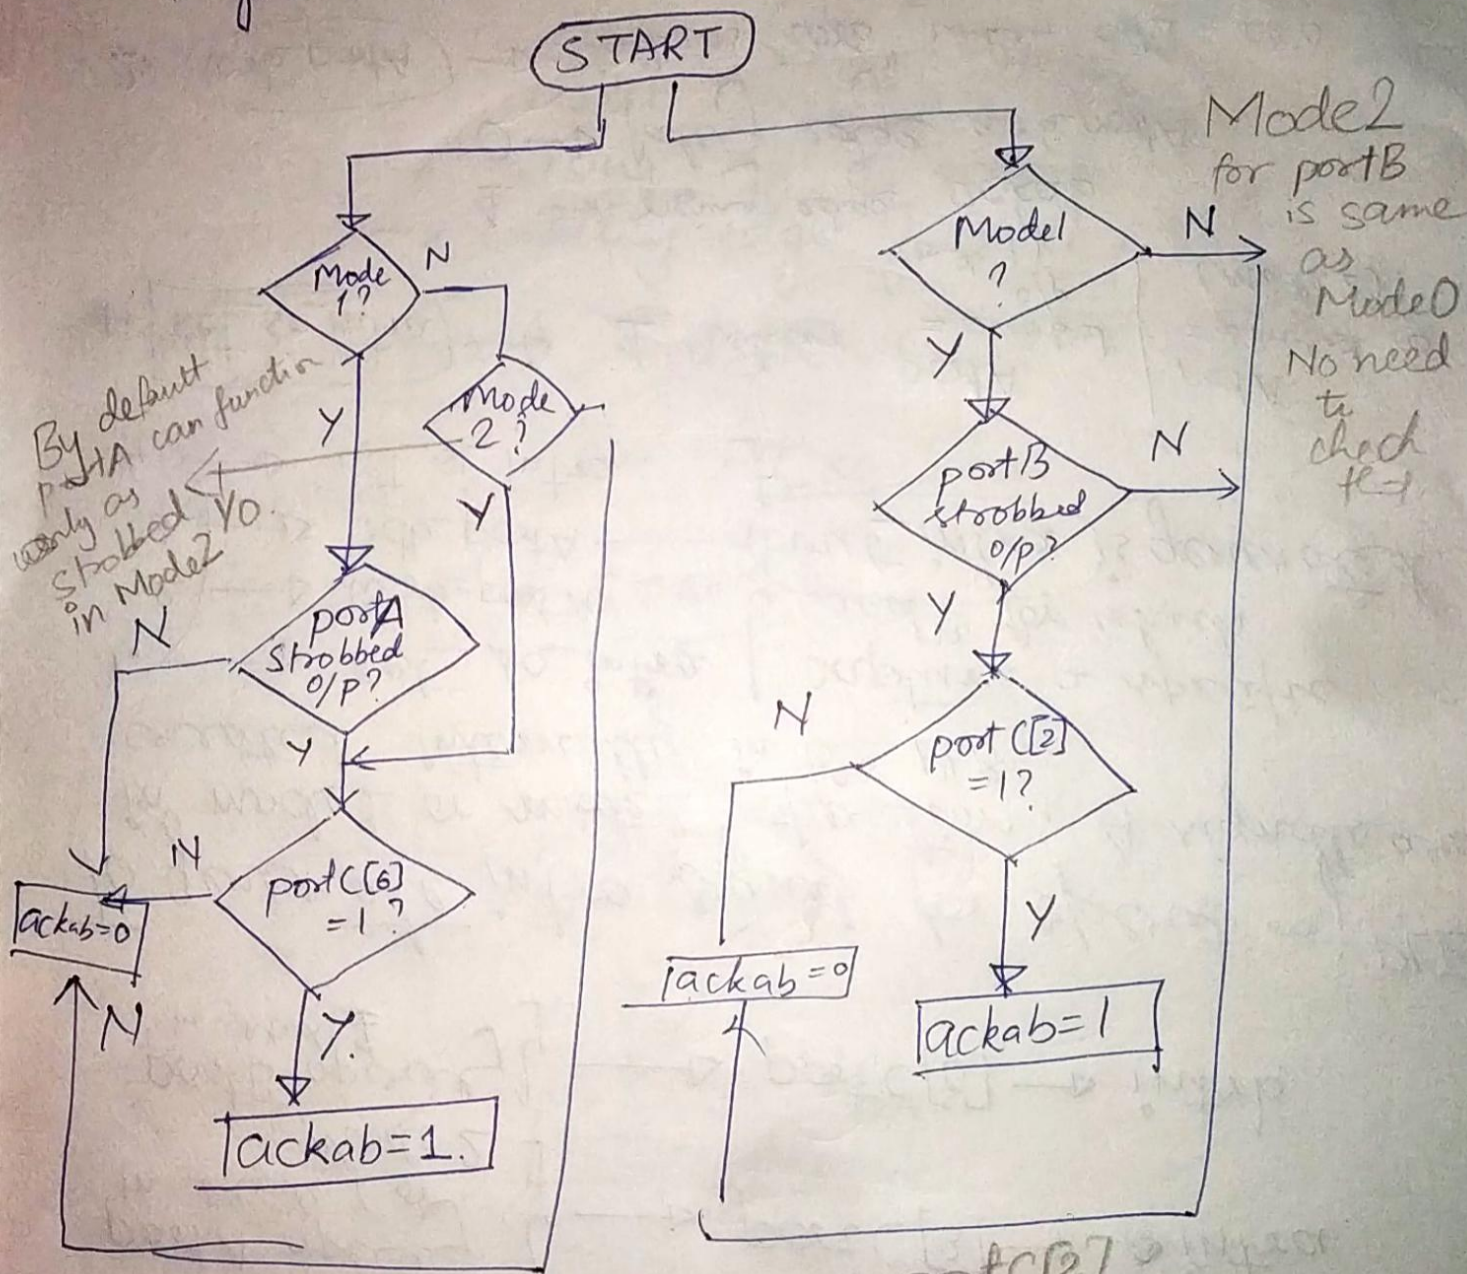 START
Mode
1?
N
Y
Mode
2?
Y
By default
portA can function
only as
strobbed I/O.
in Mode2
portA
Strobbed
O/P?
N
Y
portC[6]
=1?
N
ackab=0
N
Y.
ackab=1.
Mode1
?
N
Y
Mode2
for portB
is same
as
Mode0
No need
to
check
portB
strobbed
O/P?
N
Y
portC[2]
=1?
N
Y
ackab=0
ackab=1